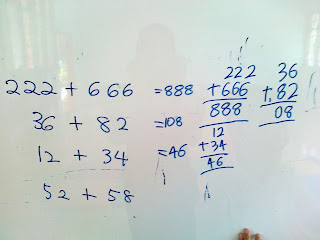 222 + 666 = 888
36 + 82 = 108
12 + 34 = 46
52 + 58
222
+666
888
12
+34
46
36
+82
08